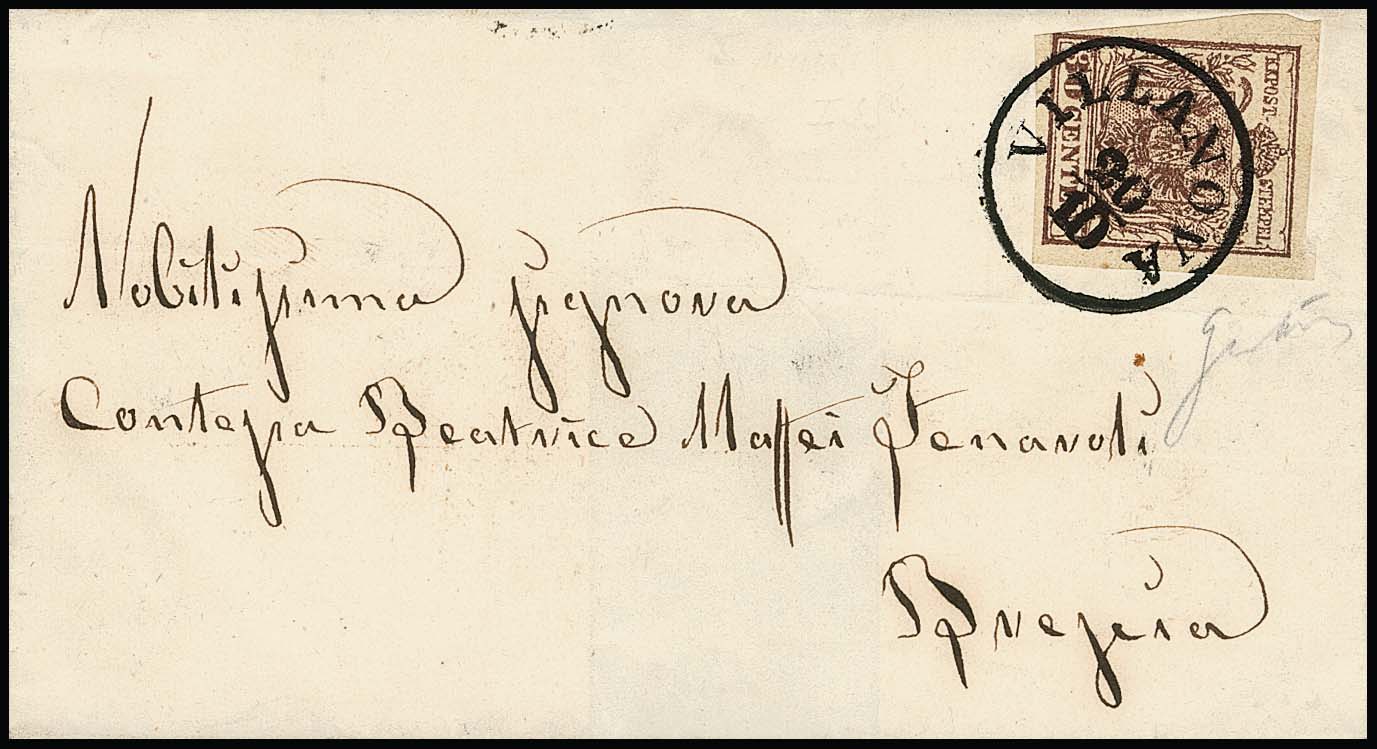 KKPOST-STEMPEL
30 CENTES
VILLANOVA
30
10
Nobilissima signora
Contessa Beatrice Maffei Fenaroli
Brescia